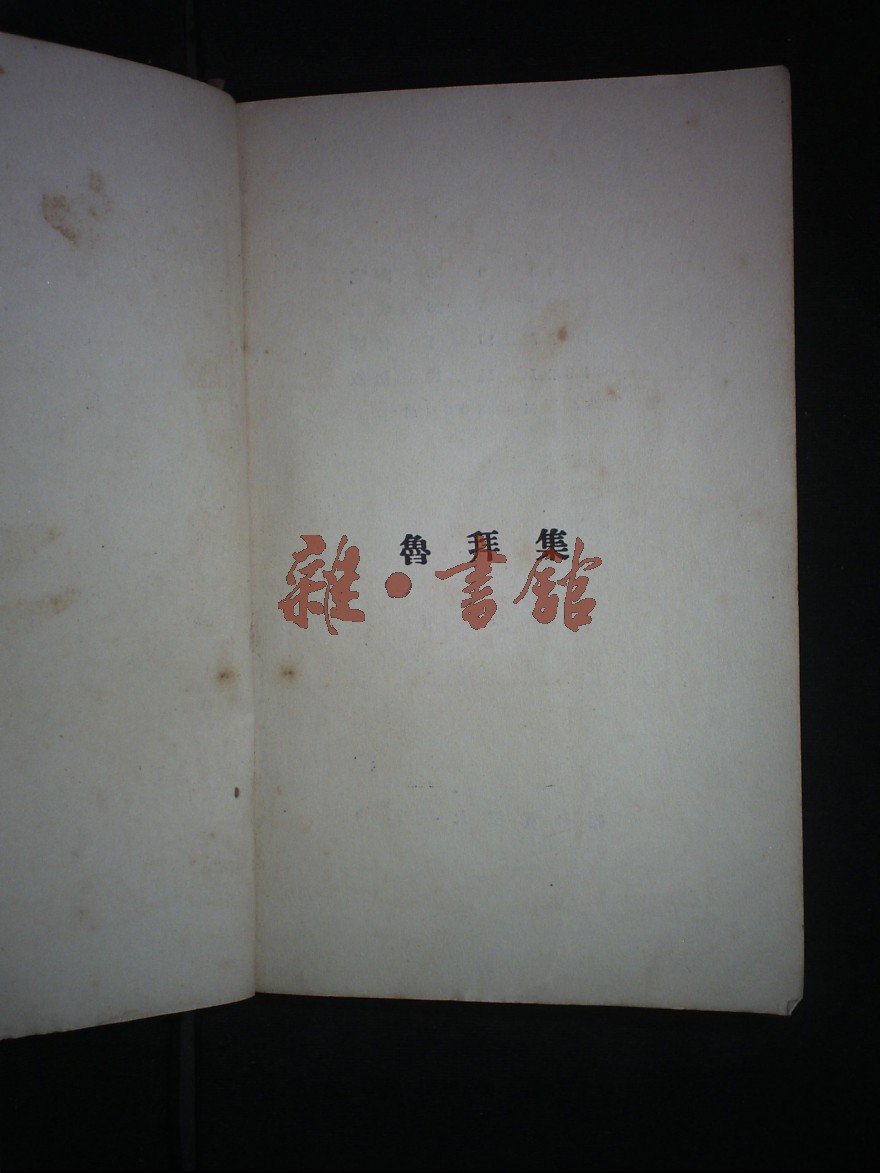 魯拜集
雜·書館